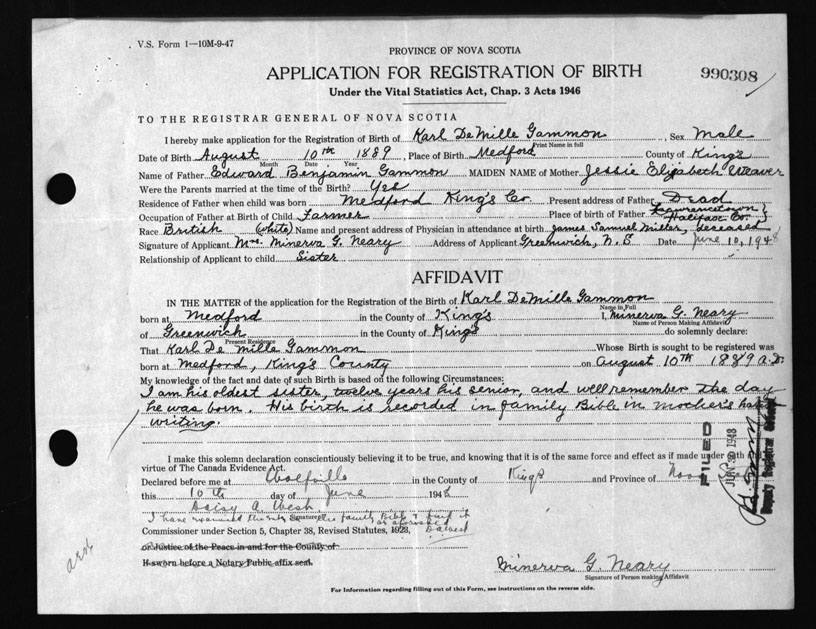 V.S. Form 1—10M-9-47
PROVINCE OF NOVA SCOTIA
990308
APPLICATION FOR REGISTRATION OF BIRTH
Under the Vital Statistics Act, Chap. 3 Acts 1946
TO THE REGISTRAR GENERAL OF NOVA SCOTIA
I hereby make application for the Registration of Birth of Karl DeMille Gammon, Sex Male
Print Name in full
Date of Birth August 10th 1889, Place of Birth Medford County of King's
Month Date Year
Name of Father Edward Benjamin Gammon MAIDEN NAME of Mother Jessie Elizabeth Weaver
Were the Parents married at the time of the Birth? Yes
Residence of Father when child was born Medford King's Co. Present address of Father Dead
Occupation of Father at Birth of Child Farmer Place of birth of Father Lawrencetown Halifax Co.
Race British (white) Name and present address of Physician in attendance at birth James Samuel Miller, deceased
Signature of Applicant Mrs. Minerva G. Neary Address of Applicant Greenwich, N.S Date June 10, 1948
Relationship of Applicant to child Sister
AFFIDAVIT
IN THE MATTER of the application for the Registration of the Birth of Karl DeMille Gammon
born at Medford in the County of King's I, Minerva G. Neary
Name in Full
Name of Person Making Affidavit
of Greenwich in the County of King's do solemnly declare:
Present Residence
That Karl De Mille Gammon Whose Birth is sought to be registered was
born at Medford, King's County on August 10th 1889 A.D.
My knowledge of the fact and date of such Birth is based on the following Circumstances:
I am his oldest sister, twelve years his senior, and well remember the day
he was born. His birth is recorded in family Bible in mother's hand
writing.
FILED
JUN 30 1948
Deputy Registrar General
I make this solemn declaration conscientiously believing it to be true, and knowing that it is of the same force and effect as if made under oath and
virtue of The Canada Evidence Act.
Declared before me at Wolfville in the County of Kings and Province of Nova
this 10th day of June 1948
Daisy A. West
I have examined the entry in the family Bible & find it
as aforesaid
Signature
Commissioner under Section 5, Chapter 38, Revised Statutes, 1923,
or Justice of the Peace in and for the County of
If sworn before a Notary Public affix seal.
Minerva G. Neary
Signature of Person making Affidavit
For Information regarding filling out of this Form, see instructions on the reverse side.